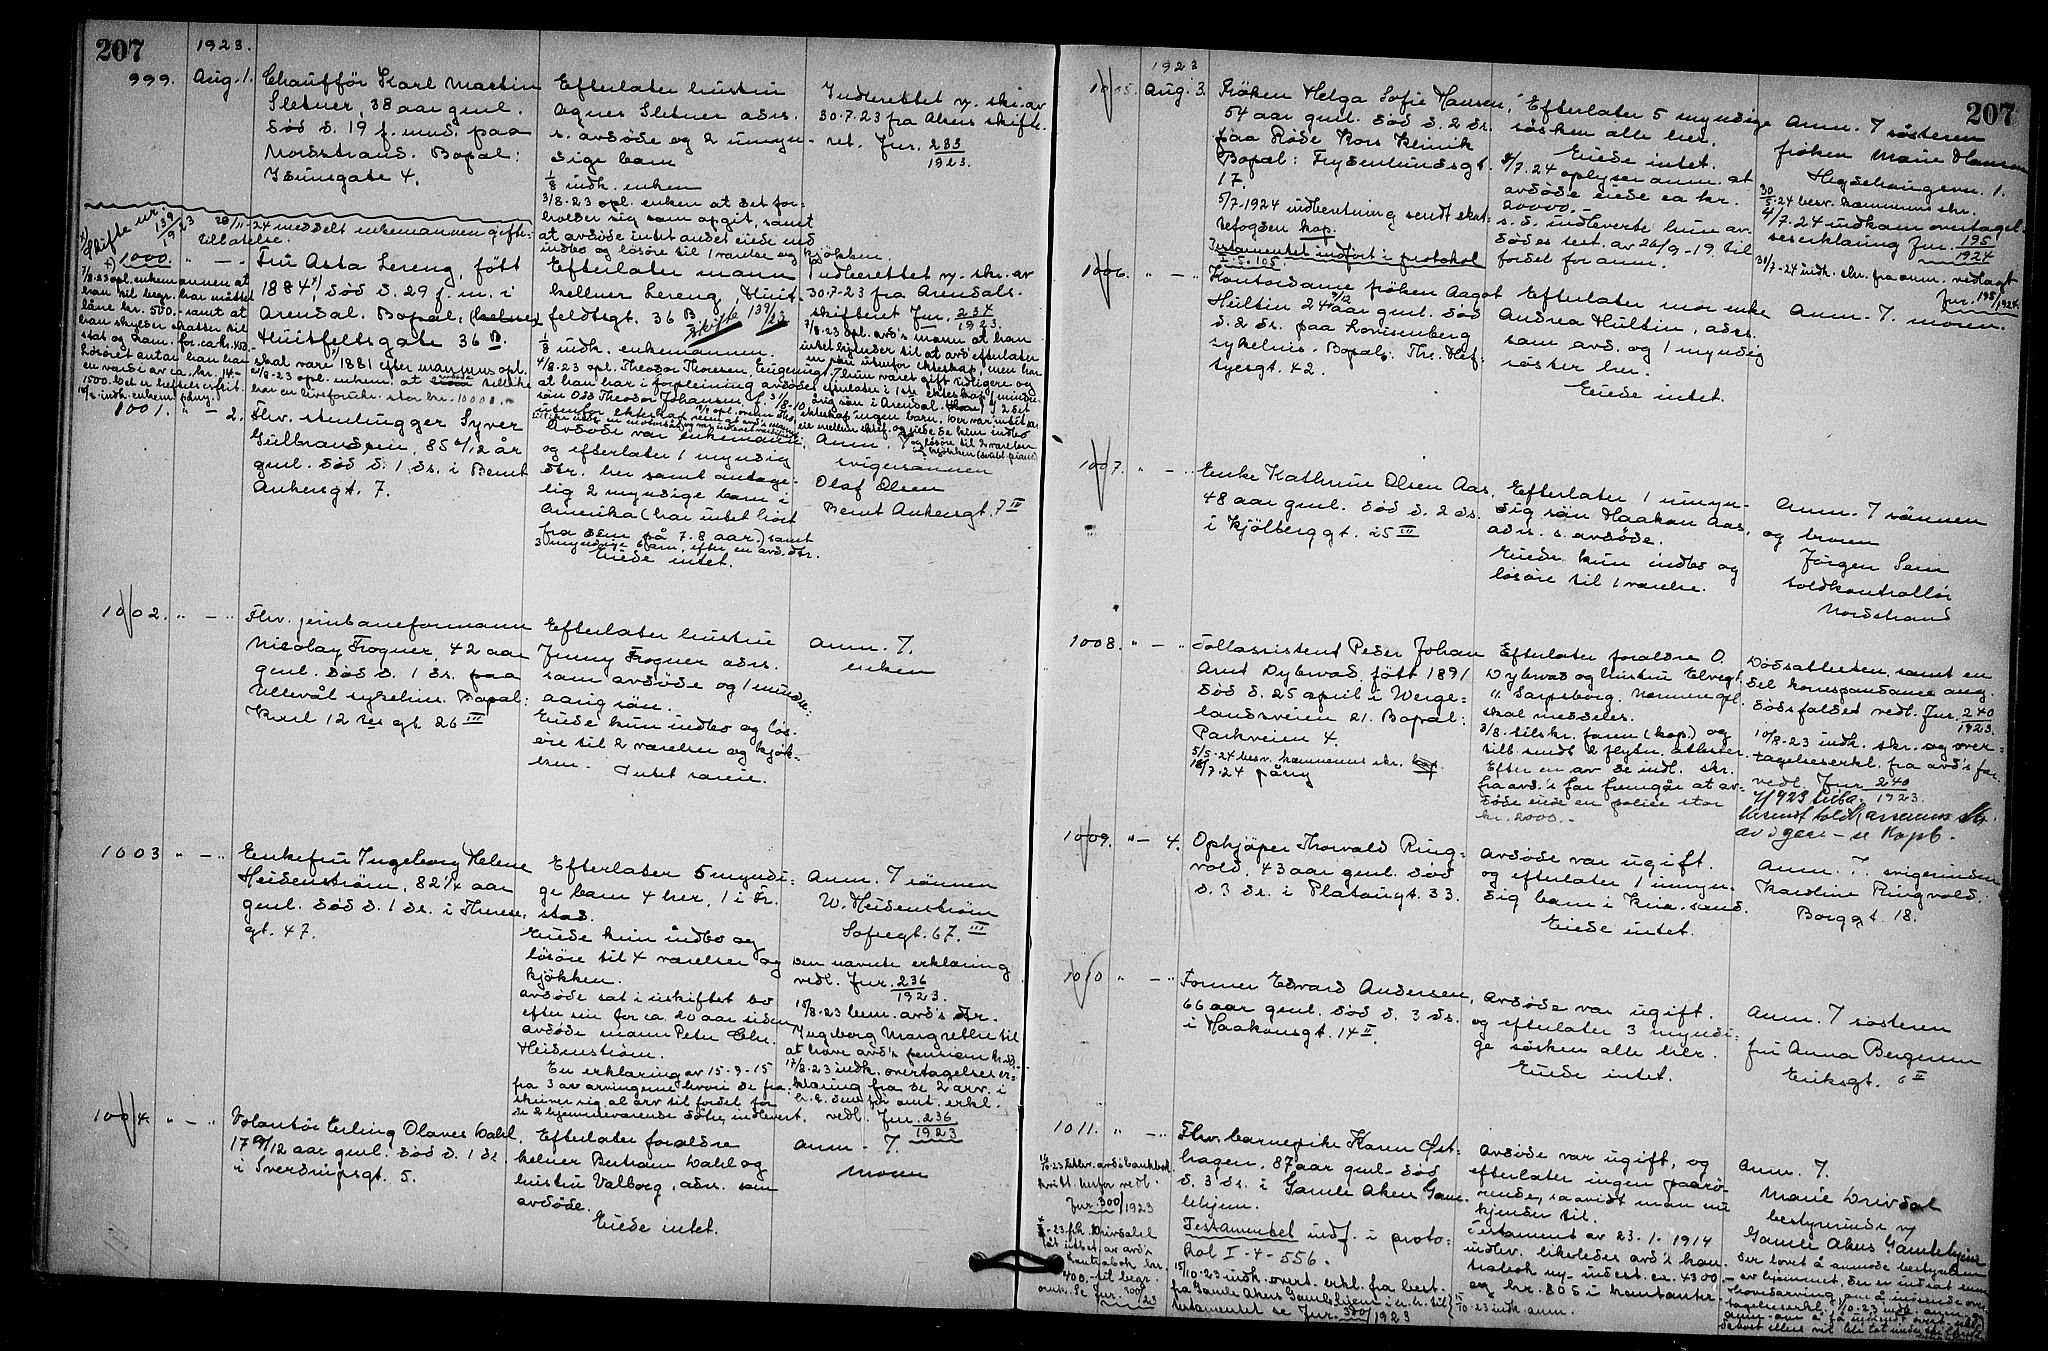 207
1923.
999. Aug. 1. Chaufför Karl Martin
Sletner, 38 aar gml.
död d. 19 f. mnd. paa
Nordstrand. Bopæl:
Isumsgate 4.
Efterlater hustru
Agnes Sletner adrs.
s. avdöde og 2 umyn-
dige barn
1/8 indk. enken
3/8-23 opl. enken at det for-
holder sig som opgit, samt
at avdöde intet andet eiede end
indbo og lösöre til 1 værelse og kjökken.
Indberettet v. skr. av
30.7.23 fra Akers skifte-
ret. Jnr. 233/1923.
Skifte nr. 139/1923
28/11 24 meddelt enkemannen gifte-
tillatelse.
1000. " — " Fru Asta Lereng, født
1884, död d. 29 f. m. i
Arendal. Bopæl:
Huitfeltsgate 36 B.
skal være 1881 efter mannens opl.
7/8.23 opl. enkemannen at
han til begr. har måttet
låne kr. 500.- samt at
han skylder skatter til
stat og kom. for ca. kr. 450.
Efterlater mann
kellner Lereng, Huit-
feldtsgt. 36 B Skifte 139/23
1/8 indk. enkemannen.
4/8-23 opl. Theodor Thoresen,
at han har i forpleining avdödes
sön Odd Theodor Johansen f. 31/8-10
utenfor ekteskap
Indberettet v. skr. av
30.7.23 fra Arendals
skifteret Jnr. 234/1923.
7/8.23 opl. avd's mann at han
intet kjender til at avd. efterlater
1001. " — 2. Fhv. stenhugger Syver
Gulbrandsen, 85 6/12 år
gml. död d. 1 ds. i Bernt
Ankersgt. 7.
Avdöde var enkemann
og efterlater 1 myndig
dtr. her samt antage-
lig 2 myndige barn i
Amerika (har intet hört
fra dem på 7-8 aar.) samt
3 myndige barn efter en avd. dtr.
Eiede intet.
Anm. 7
svigersönnen
Olaf Olsen
Bernt Ankersgt. 7 IV
1002. " — " Fhv. jernbaneformann
Nicolay Frogner, 42 aar
gml. död d. 1 ds. paa
Ullevål sykehus. Bopæl:
Karl 12 tes gt. 26 III
Efterlater hustru
Jenny Frogner adrs.
som avdöde og 1 mindre-
aarig sön.
Eiede kun indbo og lös-
öre til 2 værelser og kjök-
ken. Intet savn.
Anm. 7.
enken
1003 " — " Enkefru Ingeborg Helene
Heidenström, 82 1/4 aar
gml. död d. 1 ds. i Therese-
gt. 47.
Efterlater 5 myndi-
ge barn 4 her, 1 i Fr.
stad.
Eiede kun indbo og
lösöre til 4 værelser og
kjökken.
Avdöde sat i uskiftet bo
efter sin for ca. 20 aar siden
avdöde mann Peter Chr.
Heidenström.
En erklæring av 15-9-15
fra 3 av arvingerne hvori de fra-
skriver sig al arv til fordel for
de 2 hjemmeværende dötre, indlevert.
Anm. 7 sönnen
W. Heidenström
Sofiegt. 67. III
Den nævnte erklæring
vedl. Jnr. 236/1923.
15/8.23 bem. avd's dtr.
Ingeborg Margrethe til
at hæve avd's pension
17/8.23 indk. overtagelseser-
klæring fra de 2 arv. i
h. t. den for omt. erkl.
vedl. Jnr. 236/1923
1004. " — " Volontör Erling Olaves Dahl,
17 9/12 aar gml. död d. 1 ds
i Sverdrupsgt. 5.
Efterlater foraldre
kelner Bertram Dahl og
hustru Valborg, adrs. som
avdöde.
Eiede intet.
Anm. 7.
Moren
207
1923
1005. Aug. 3 Fröken Helga Sofie Hansen,
54 aar gml. död d. 2 ds.
paa Röde Kors Klinik
Bopæl: Frydenlundsgt.
17.
5/7-1924 indberetning sendt skat-
tefogden kop.
Testamentet indfört i protokol
I-5-105.
Efterlater 5 myndige
sösken alle her.
Eiede intet.
4/7.24 oplyser anm. at
avdöde eiede ca kr.
20000.-
s. d. indleverte hun av-
dödes test. av 26/9-19 til
fordel for anm.
Anm. 7 søsteren
fröken Marie Hansen
Hegdehaugsvn. 1.
30/5-24 besv. kæmnerens skr.
4/7-24 indkom overtagel-
seserklæring Jnr. 195/1924
31/7-24 indk. skr. fra anm. vedlagt
Jnr. 195/1924
1006. " — " Kontordame fröken Aagot
Hultin 24 9/12 aar gml. död
d. 2 ds. paa Lovisenberg
sykehus. Bopæl: Th. Kit-
tyesgt. 42.
Efterlater mor enke
Andrea Hultin, adrs.
som avd. og 1 myndig
söster her.
Eiede intet.
Anm. 7. moren.
1007. " — " Enke Kathrine Olsen Aas,
48 aar gml. död d. 2 ds.
i Kjölberggt. 25 III
Efterlater 1 umyn-
dig sön Haakon Aas,
adrs. s. avdöde.
Eiede kun indbo og
lösöre til 1 værelse.
Anm. 7 sönnen
og broren
Jörgen Sem
toldkontrollör
Nordstrand
1008. " — " Tollassistent Peder Johan
Arnt Dybwad, fött 1891
död d. 25 april i Werge-
landsveien 21. Bopæl:
Parkveien 4.
5/5-24 besv. kæmnerens skr. kop.
18/7-24 påny
Efterlater foraldre O.
Dybwad og hustru Elvegt.
11 Sarpsborg. Nærmere opl.
skal meddeles.
3/8. tilskr. faren (kop.) og
tilb. sendt 2 flyttn. attester.
Efter en av de indl. skr.
fra avd.'s far fremgår at av-
döde eiede en police stor
kr. 2000.-
Dödsattesten, samt en
del korrespondance ang.
dödsfaldet vedl. Jnr. 240/1923.
10/8-23 indk. skr. og over-
tagelseserkl. fra avd's far
vedl. Jnr. 240/1923.
1009. " — 4. Opkjöper Thorvald Ring-
vold, 43 aar gml. död
d. 3 ds. i Platousgt. 33.
Avdöde var ugift.
og efterlater 1 umyn-
dig barn i Kria.sand.
Eiede intet.
Anm. 7. svigerinden
Karoline Ringvold.
Borggt. 18.
1010 " — " Former Edvard Andersen,
66 aar gml. död d. 3 ds.
i Haakonsgt. 14 II.
Avdöde var ugift.
og efterlater 3 myndi-
ge sösken alle her.
Eiede intet.
Anm. 7 søsteren
fru Anna Bergersen
Eriksgt. 6 II
1011. " — " Fhv. barnepike Karen Øst-
hagen, 87 aar gml. död
d. 3 ds. i Gamle Akers Gam-
lehjem.
Testamentet indf. i proto-
kol I-4-556.
15/10-23 indk. overt. erkl. fra best.
fra Gamle Akers Gamlehjem i h. h. til
testamentet se Jnr. 300/1923
Jnr. 300/1923
Avdöde var ugift, og
efterlater ingen paarö-
rende, saavidt man nu
kjender til.
Testament av 23.1.1914
indlev. likeledes avd's kon-
trabok ny indest. ca. 4300.-
og kr. 805 i kontanter.
/10-23 indk. anm.
Anm. 7.
Marie Drivdal
bestyrerinde v
Gamle Akers Gamlehjem
Der lovet å anmode bestyrelsen
av hjemmet, der er indsat som
hovedarving, om å indsende over-
tagelseserkl.